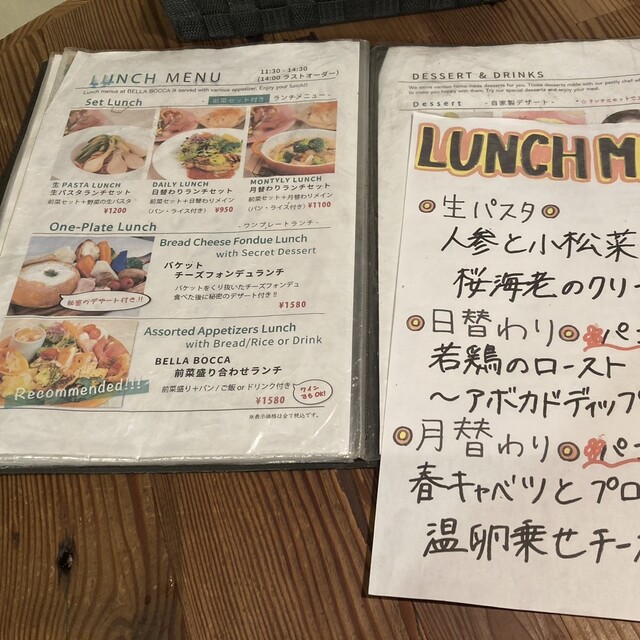 LUNCH MENU
11:30 - 14:30
(14:00 ラストオーダー)
Lunch menus at BELLA BOCCA is served with various appetizer. Enjoy your lunch!!
Set Lunch
前菜セット付き ランチメニュー
生 PASTA LUNCH
生パスタランチセット
前菜セット+野菜の生パスタ
¥1200
DAILY LUNCH
日替わりランチセット
前菜セット+日替わりメイン
(パン・ライス付き) ¥950
MONTYLY LUNCH
月替わりランチセット
前菜セット+月替わりメイン
(パン・ライス付き) ¥1100
One-Plate Lunch
- ワンプレートランチ -
Bread Cheese Fondue Lunch
with Secret Dessert
バケット
チーズフォンデュランチ
バケットをくり抜いたチーズフォンデュ
食べた後に秘密のデザート付き!!
¥1580
秘密のデザート付き!!
Assorted Appetizers Lunch
with Bread/Rice or Drink
BELLA BOCCA
前菜盛り合わせランチ
前菜盛り+パン / ご飯 or ドリンク付き
¥1580
ワイン
でもOK!
Recommended!!!
※表示価格は全て税込です。
DESSERT & DRINKS
Dessert - 自家製デザート -
LUNCH M
生パスタ
人参と小松菜
桜海老のクリー
日替わり パ
若鶏のロースト
～アボカドディップ
月替わり パ
春キャベツとプロ
温卵乗せチー